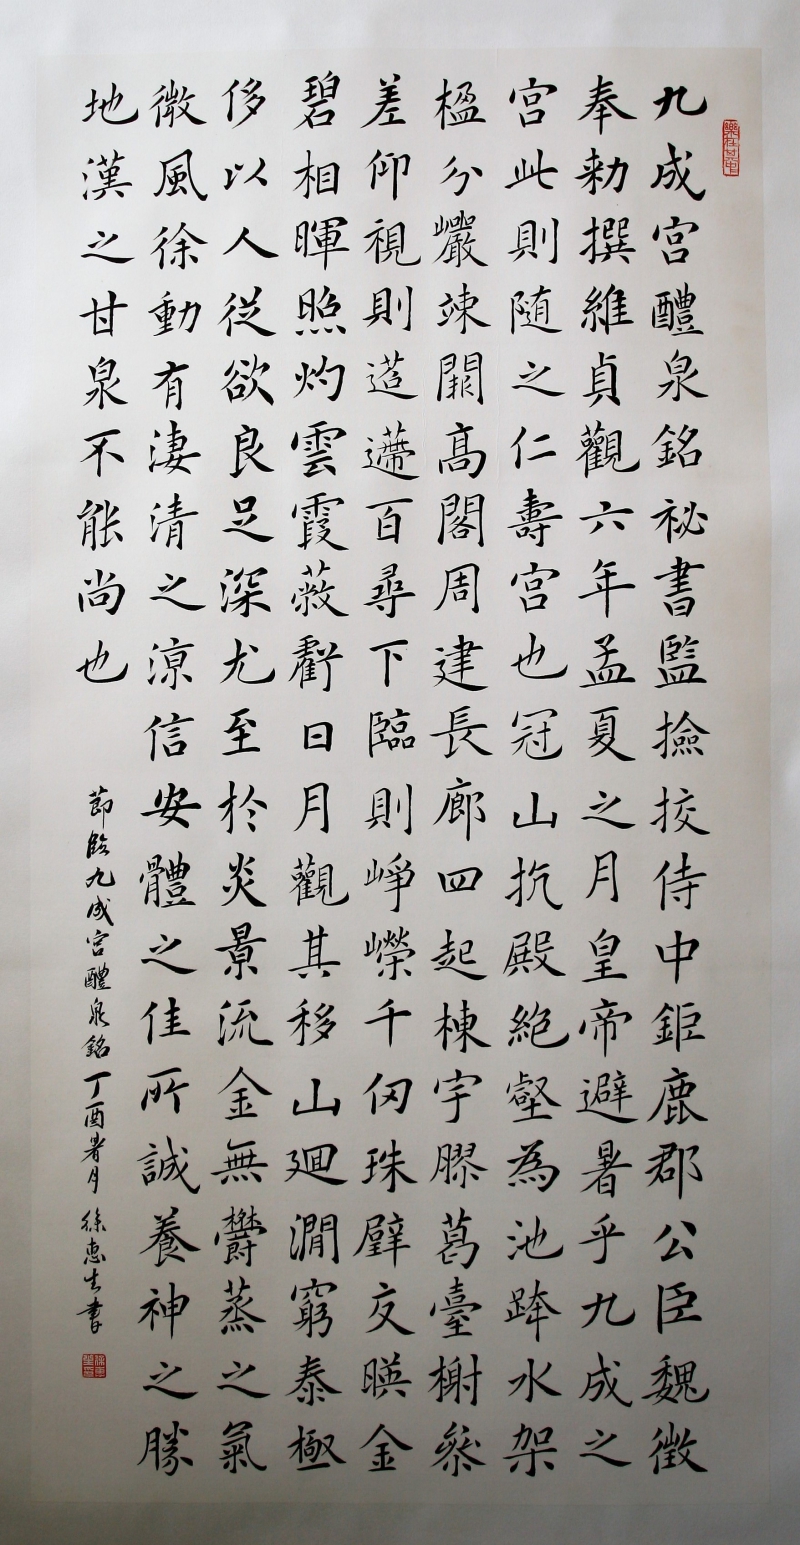 樂在其中
九成宮醴泉銘祕書監撿挍侍中鉅鹿郡公臣魏徵
奉勑撰維貞觀六年孟夏之月皇帝避暑乎九成之
宮此則随之仁壽宮也冠山抗殿絕壑為池跨水架
楹分巖竦闕高閣周建長廊四起棟宇膠葛臺榭參
差仰視則迢遰百尋下臨則崢嶸千仞珠壁交暎金
碧相暉照灼雲霞蔽虧日月觀其移山廻澗窮泰極
侈以人從欲良足深尤至於炎景流金無鬱蒸之氣
微風徐動有淒清之涼信安體之佳所誠養神之勝
地漢之甘泉不能尚也
節臨九成宮醴泉銘丁酉暑月徐惠生書